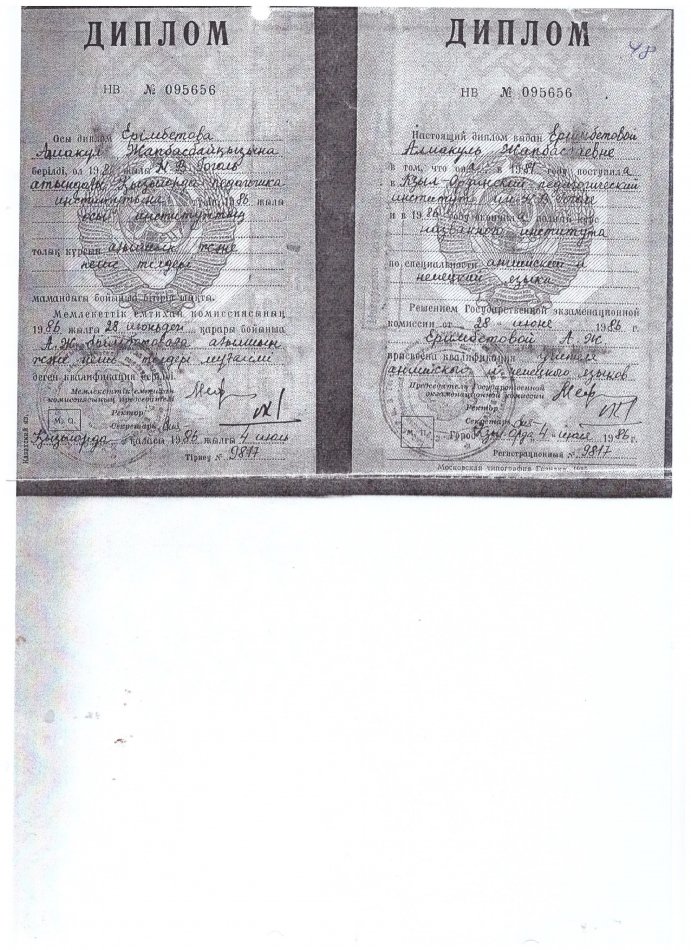 ДИПЛОМ
НВ № 095656
Осы диплом Ерімбетова
Алмакүл Жапбасбайқызына
берілді, ол 198 жылы Н.В. Гоголь
атындағы Қызылорда педагогика
институтына 1986 жылы
осы институттың
толық курсын ағылшын және
неміс тілдері
мамандығы бойынша бітіріп шықты.
Мемлекеттік емтихан комиссиясының
1986 жылғы 28 июньдегі қарары бойынша
А. Ж. Ерімбетоваға ағылшын
және неміс тілдері мұғалімі
деген квалификация берілді.
Мемлекеттік емтихан
комиссиясының председателі
Ректор
М. О. Секретарь
Қызылорда қаласы 1986 жылғы 4 июль
Тіркеу № 9817
ДИПЛОМ
48
НВ № 095656
Настоящий диплом выдан Еримбетовой
Алмакуль Жапбасбаевне
в том, что она в 1981 году поступила
в Кзыл-Ординский педагогический
институт им. Н. В. Гоголя
и в 1986 году окончила полный курс
названного института
по специальности английский и
немецкий языки
Решением Государственной экзаменационной
комиссии от 28 июня 1986 г.
Еримбетовой А. Ж.
присвоена квалификация учителя
английского и немецкого языков
Председатель Государственной
экзаменационной комиссии
Ректор
М. П. Секретарь
Город Кзыл-Орда 4 июля 1986 г.
Регистрационный № 9817
Московская типография Гознака.